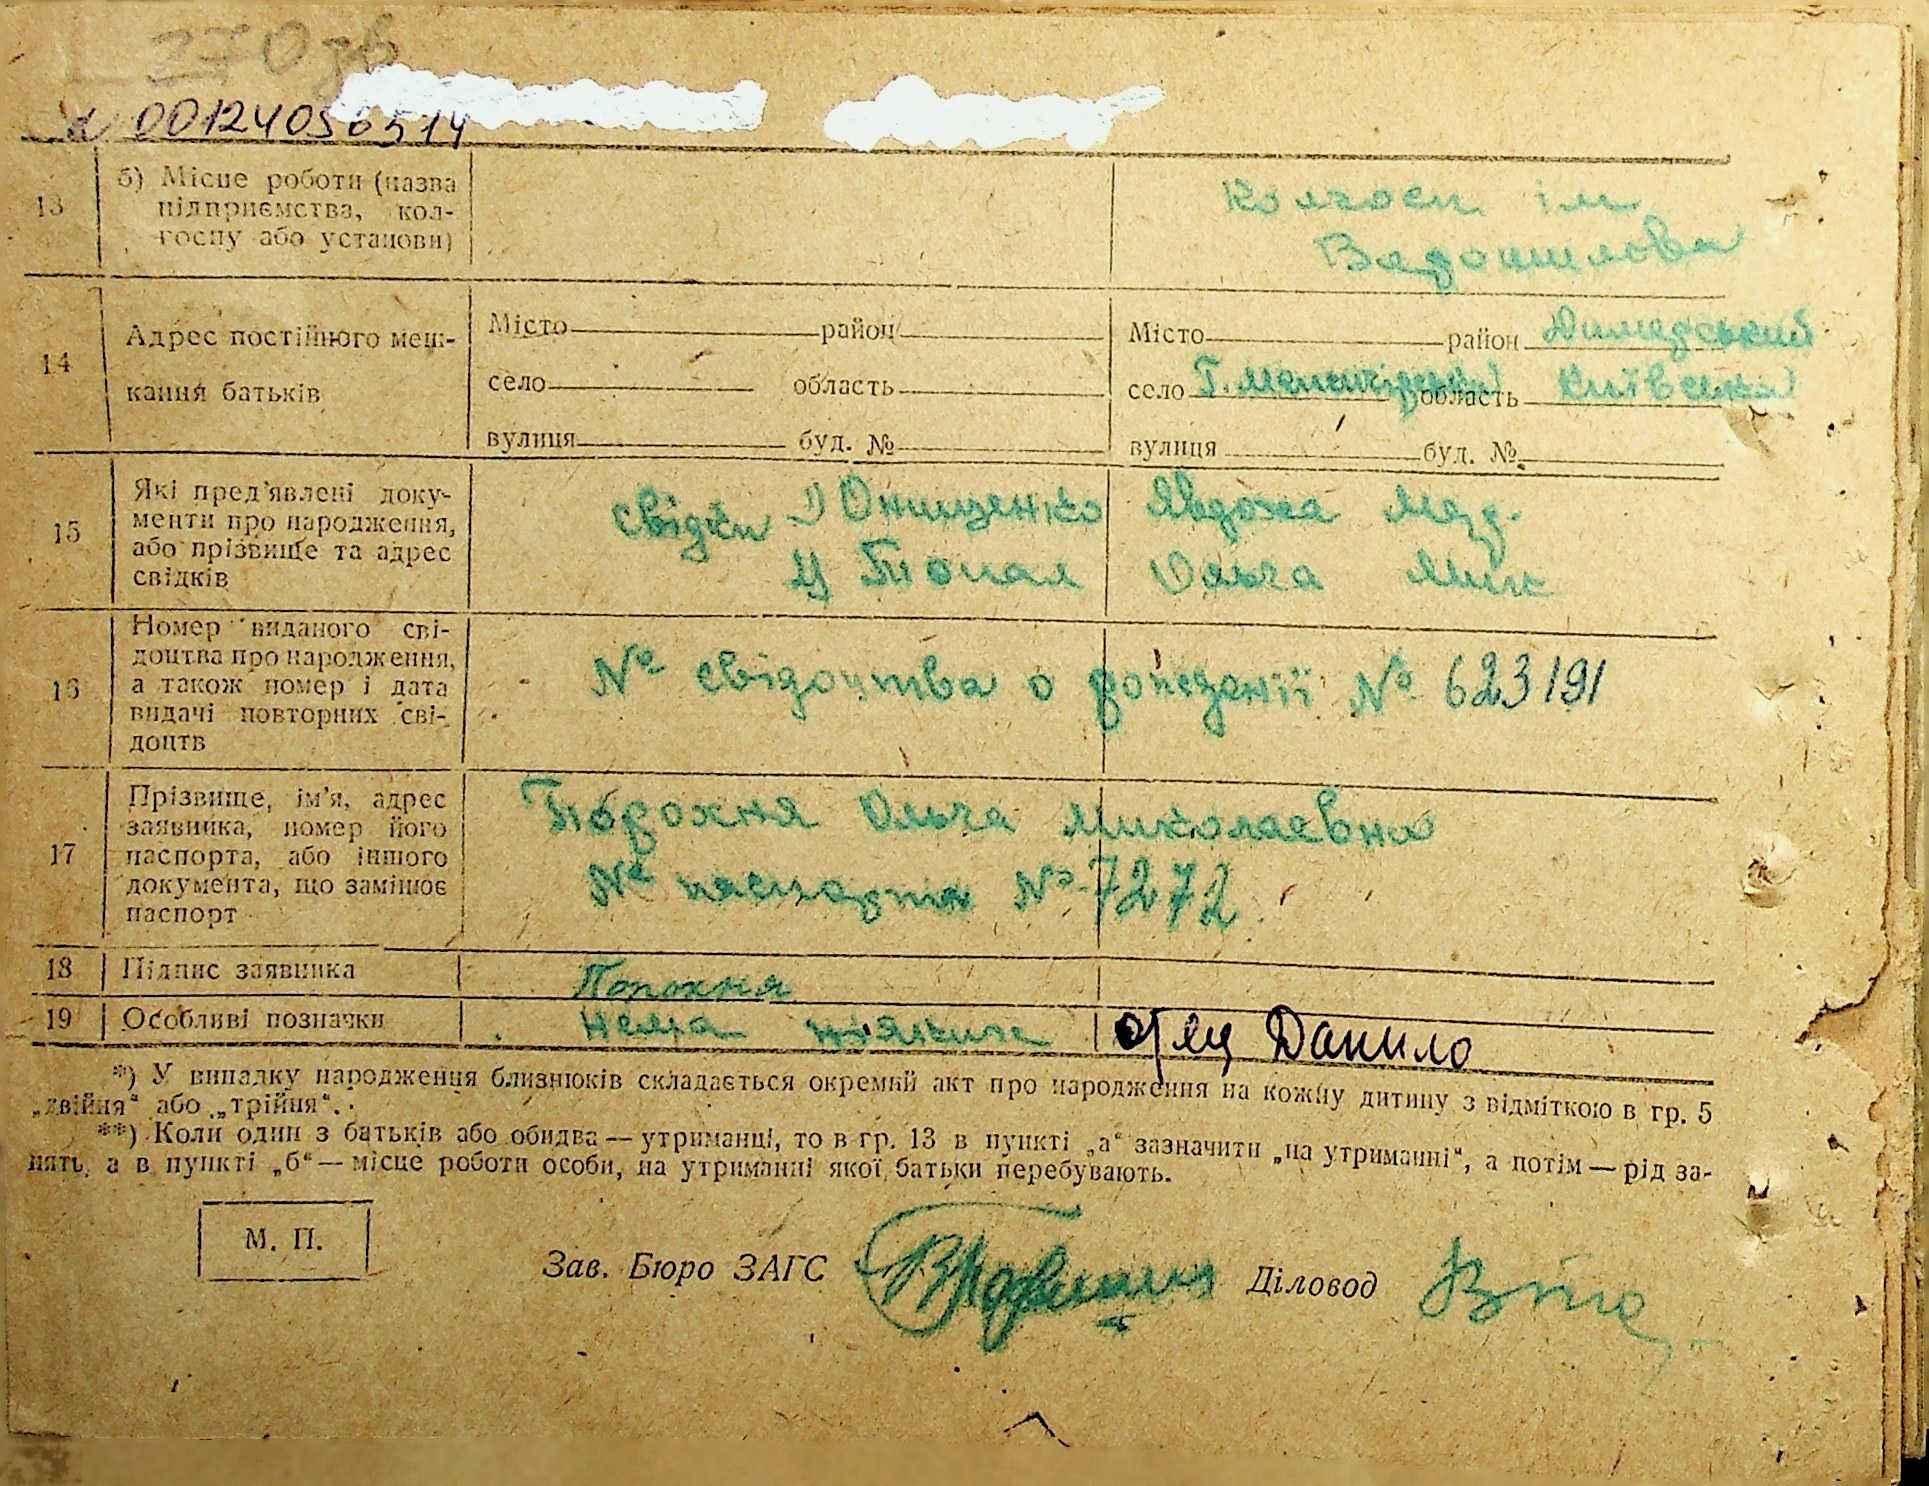 270 зв
№ 00124056514
13
б) Місце роботи (назва
підприємства, кол-
госпу або установи)
Колгосп ім
Ворошилова
14
Адрес постійного меш-
кання батьків
Місто район
село область
вулиця буд. №
Місто район Димерський
село область Київська
вулиця буд. №
15
Які пред'явлені доку-
менти про народження,
або прізвище та адрес
свідків
свідки 1) Онищенко Явдоха
Ольга Мик
16
Номер виданого сві-
доцтва про народження,
а також номер і дата
видачі повторних сві-
доцтв
№ свідоцтва о № 623191
17
Прізвище, ім'я, адрес
заявника, номер його
паспорта, або іншого
документа, що замінює
паспорт
Порохня Ольга Миколаевна
№ паспорта № 7272
18
Підпис заявника
Порохня
19
Особливі позначки
нема ніяких отец Данило
*) У випадку народження близнюків складається окремий акт про народження на кожну дитину з відміткою в гр. 5
„двійня“ або „трійня“.
**) Коли один з батьків або обидва — утриманці, то в гр. 13 в пункті „а“ зазначити „на утриманні“, а потім — рід за-
нять, а в пункті „б“ — місце роботи особи, на утриманні якої батьки перебувають.
М. П.
Зав. Бюро ЗАГС
Діловод